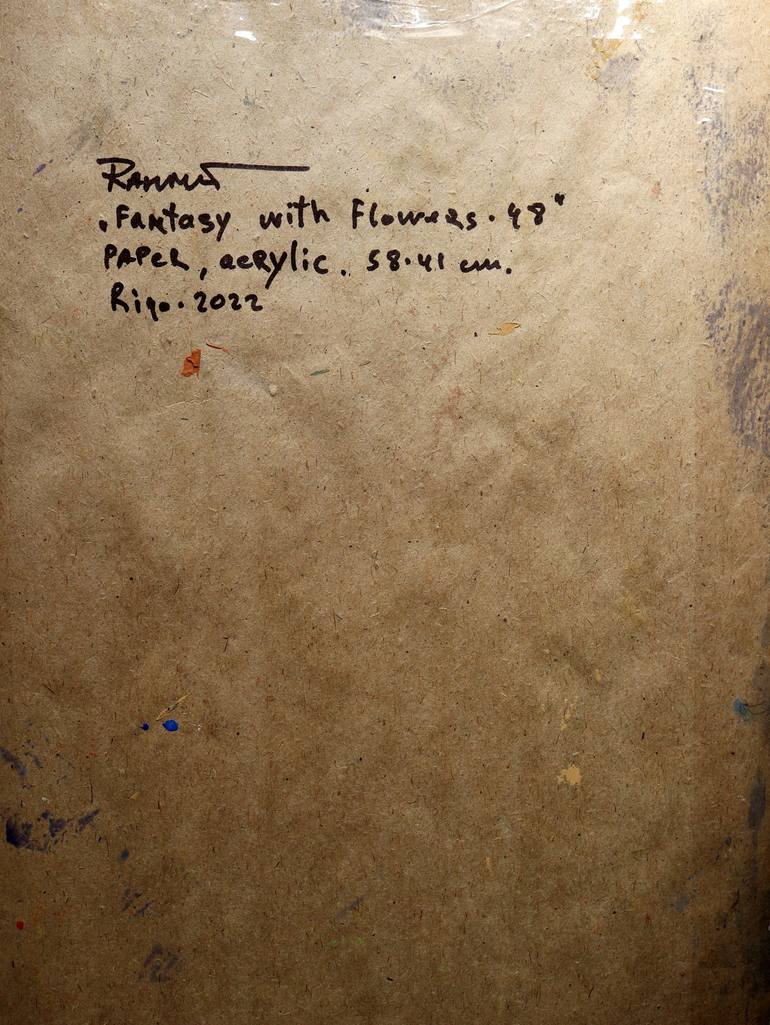 „Fantasy with Flowers. 48"
PAPER, acRylic. 58.41 cm.
Rigo. 2022